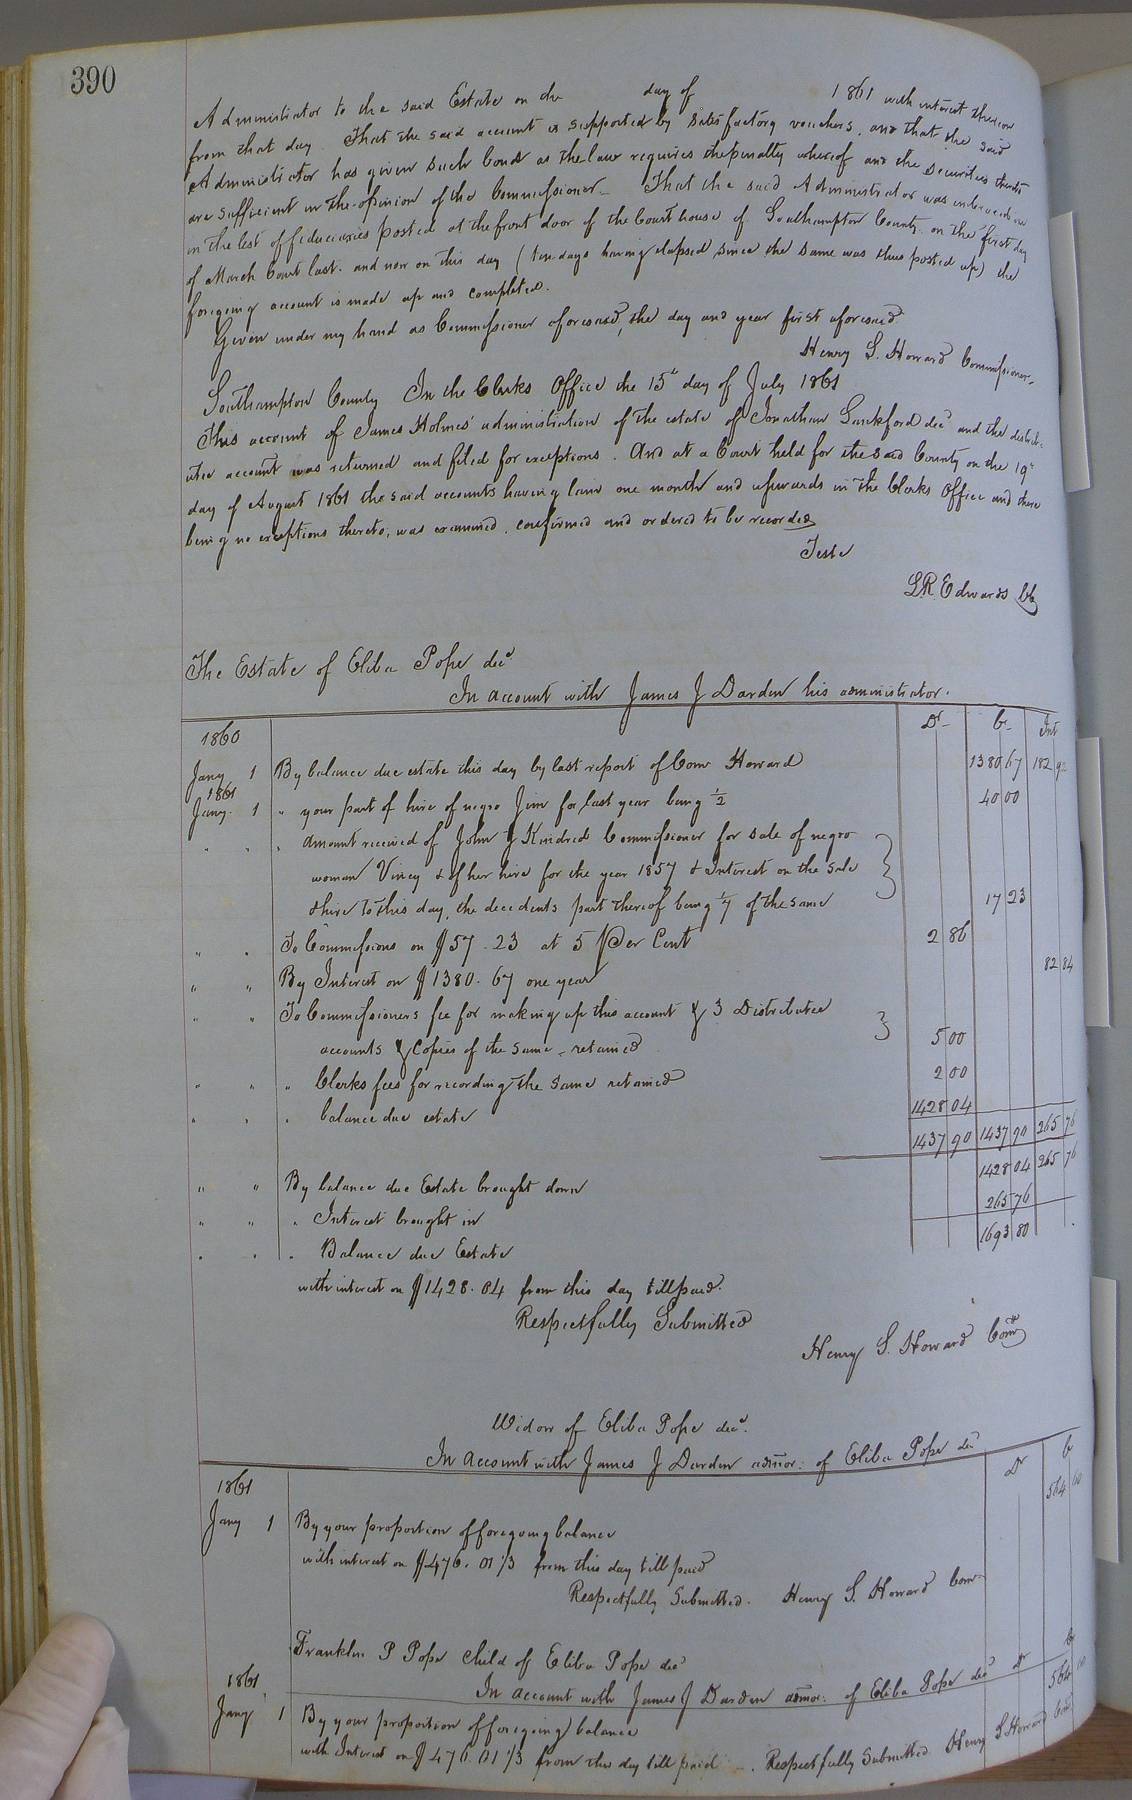 390
Administrator to the said Estate on the day of 1861 with interest thereon
from that day. That the said account is supported by satisfactory vouchers, and that the said
Administrator has given such bond as the law requires the penalty whereof and the securities thereto
are sufficient in the opinion of the Commissioner - That the said Administrator was
in the list of fiduciaries posted at the front door of the Courthouse of Southampton County on the first day
of March Court last. and now on this day (ten days having elapsed since the same was thus posted up) the
foregoing account is made up and completed.
Given under my hand as Commissioner aforesaid, the day and year first aforesaid
Henry S. Howard Commissioner
Southampton County In the Clerks Office the 15th day of July 1861
This account of James Holmes' administration of the estate of Jonathan Lankford decd and the distrib-
utee account was returned and filed for exceptions. And at a Court held for the said County on the 19th
day of August 1861 the said accounts having lain one month and upwards in the Clerks Office and there
being no exceptions thereto, was examined, confirmed and ordered to be recorded
Teste
L.R. Edwards Ck
The Estate of Eliba Pope decd
In account with James J Darden his administrator.
1860 Dr Cr Int
Jany 1 By balance due estate this day by last report of Com Howard 1380 67 182 92
1861
Jany 1 " your part of hire of negro Jim for last year being 1/2 40 00
" " " amount received of John J Kindred Commissioner for sale of negro
woman Viney & of her hire for the year 1857 & Interest on the sale
& hire to this day, the decedents part thereof being 1/7 of the same 17 23
" " To Commissions on $57.23 at 5 Per Cent 2 86
" " By Interest on $1380.67 one year 82 84
" " To Commissioners fee for making up this account & 3 Distributee
accounts & Copies of the same - retained 5 00
" " " Clerks fees for recording the same retained 2 00
" " " balance due estate 1428 04
1437 90 1437 90 265 76
" " By balance due Estate brought down 1428 04 265 76
" " " Interest brought in 265 76
" " " Balance due Estate 1693 80
with interest on $1428.04 from this day till paid.
Respectfully Submitted
Henry S. Howard Comr
Widow of Eliba Pope decd.
In Account with James J Darden admor: of Eliba Pope decd
1861 Dr Cr
Jany 1 By your proportion of foregoing balance 564 60
with interest on $476.01 1/3 from this day till paid
Respectfully Submitted. Henry S. Howard Comr
Franklin P Pope child of Eliba Pope decd
1861 In account with James J Darden admor: of Eliba Pope decd Dr Cr
Jany 1 By your proportion of foregoing balance 564 60
with Interest on $476.01 1/3 from this day till paid - . Respectfully Submitted Henry S Howard Comr